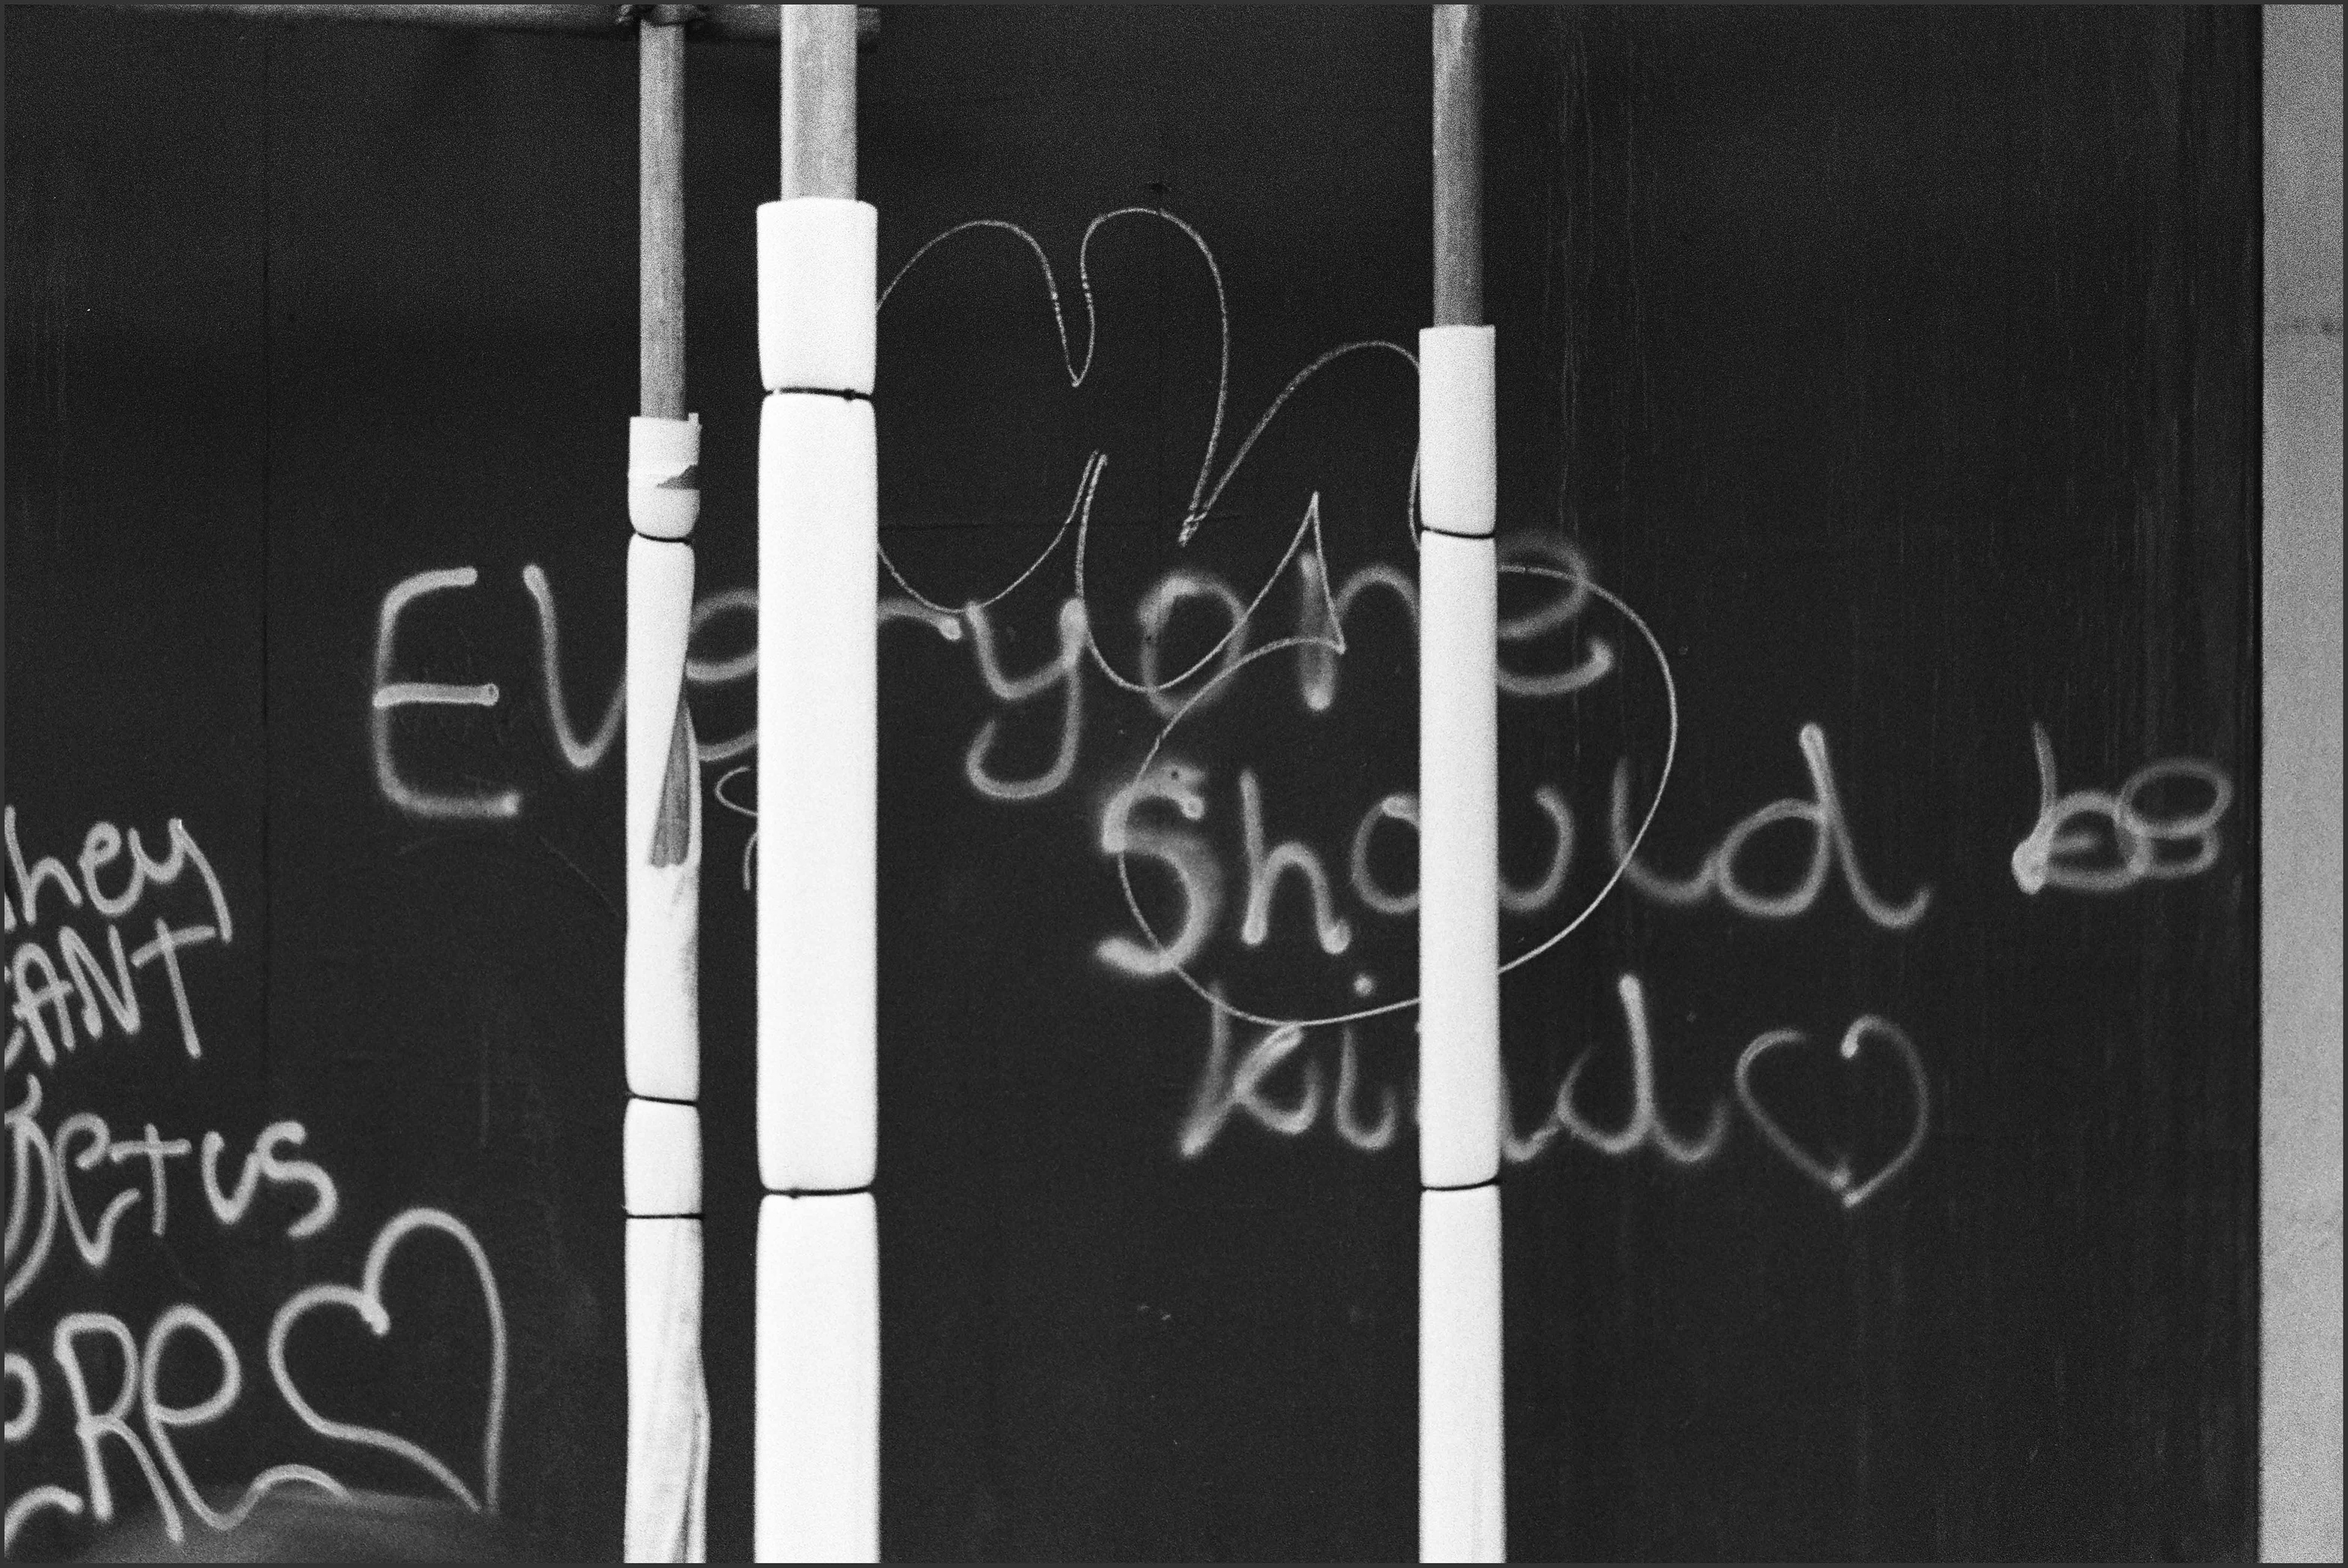 Everyone
Should be
kind
hey
CANT
us